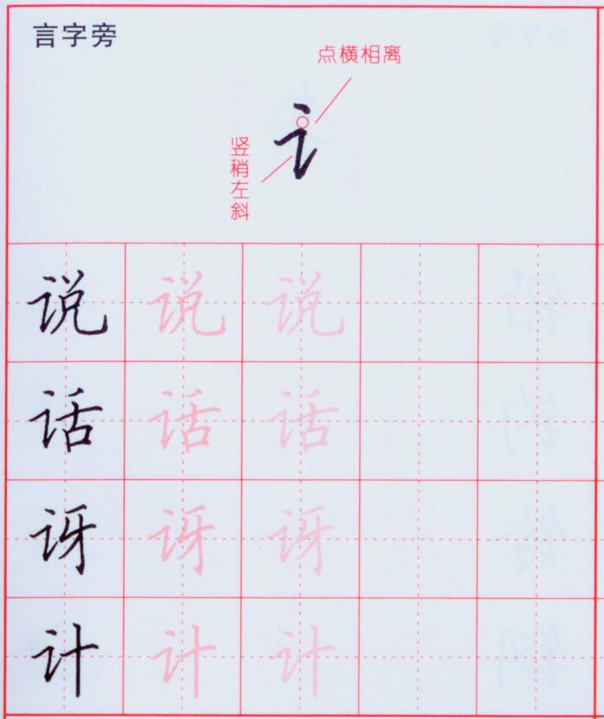 言字旁
点横相离
讠
竖稍左斜
说 说 说
话 话 话
讶 讶 讶
计 计 计